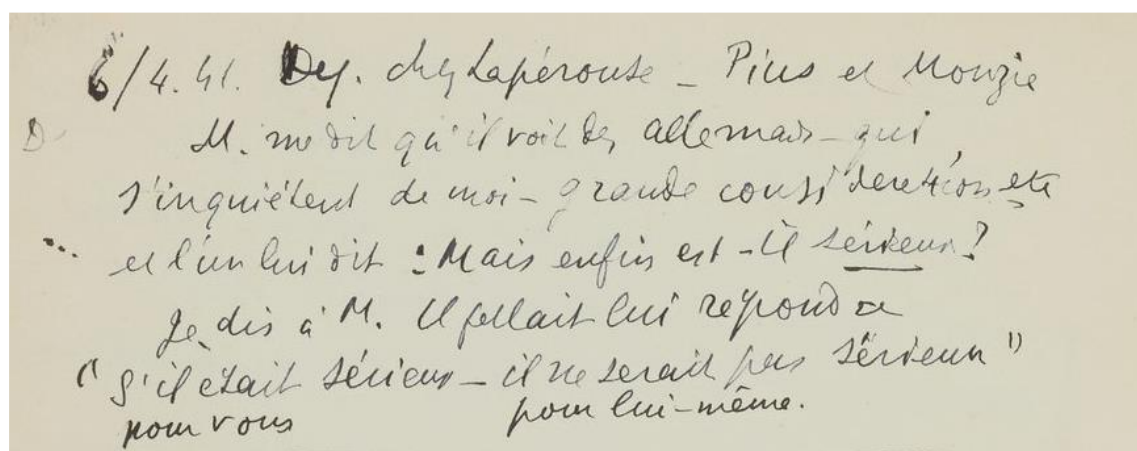 6/4.41. Dej. chez Lapérouse – Pius et Monzie
D
M. me dit qu'il voit des allemands – qui
s'inquiètent de moi – grande considération etc
... et l'un lui dit : Mais enfin est-il sérieux?
Je dis à M. Il fallait lui répondre
" S'il était sérieux – il ne serait pas sérieux "
pour vous pour lui-même.